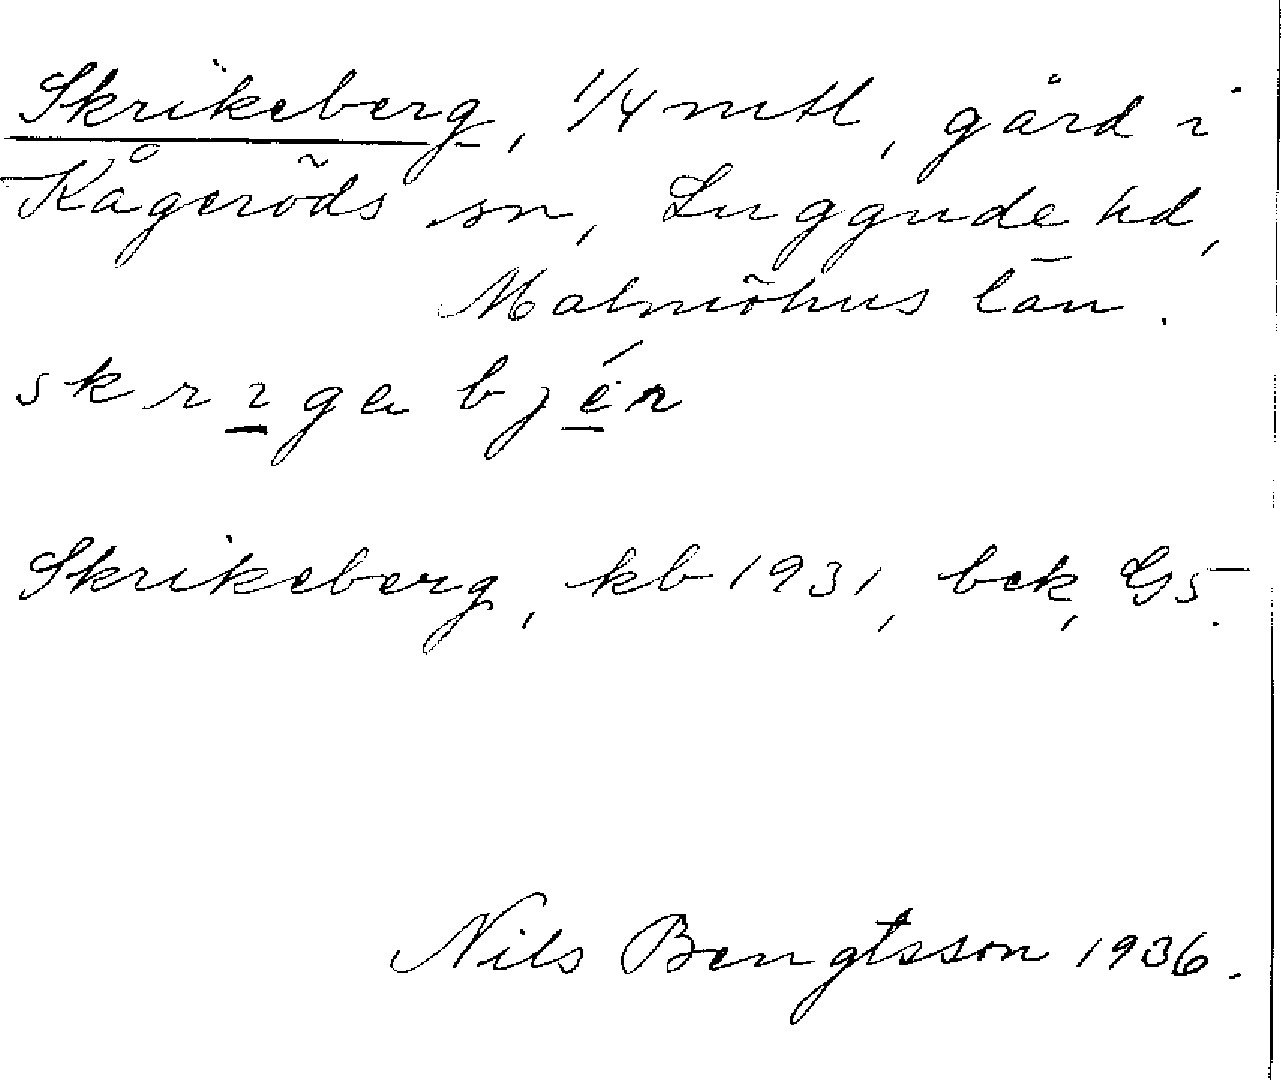 Skrikeberg, 1/4 mtl, gård i
Kågeröds sn, Luggude hd,
Malmöhus län.
skrıga bjér
Skrikeberg, kb 1931, bek, G5.
Nils Bengtsson 1936.